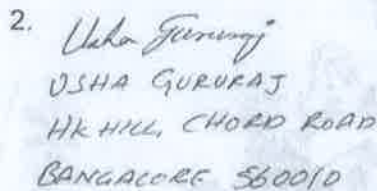 2. Usha Gururaj
USHA GURURAJ
HK HILL, CHORD ROAD
BANGALORE 560010